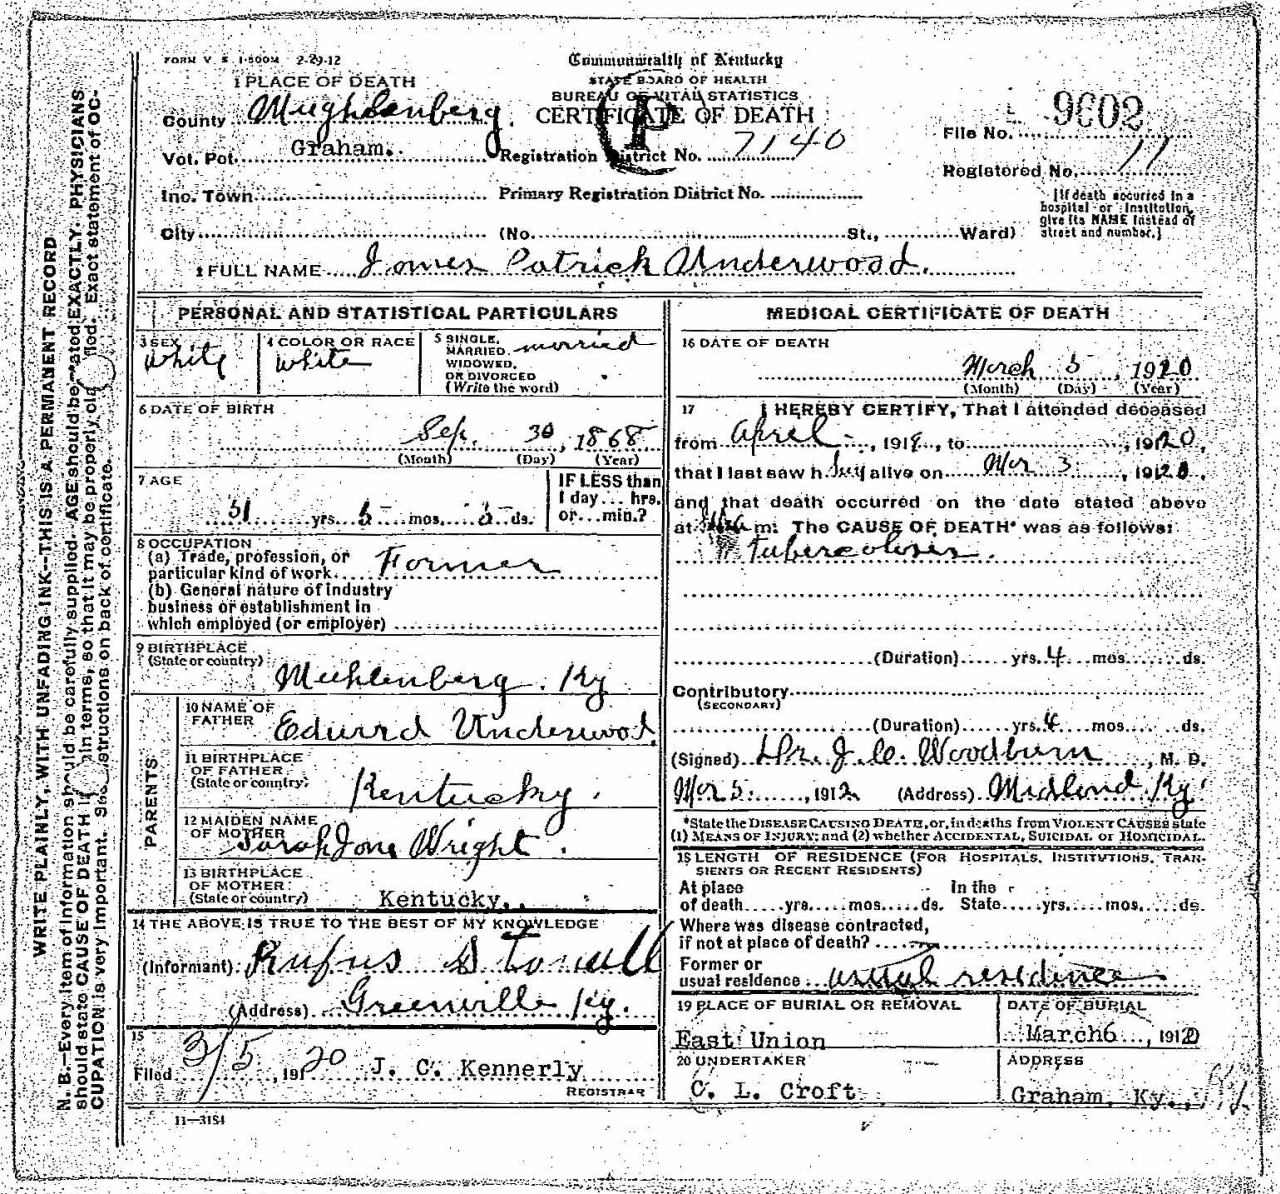 FORM V. S. 1-500M 2-29-12
Commonwealth of Kentucky
STATE BOARD OF HEALTH
BUREAU OF VITAL STATISTICS
CERTIFICATE OF DEATH
1 PLACE OF DEATH
County Mughlenberg.
Vot. Pct. Graham. Registration District No. 7140
File No. 9602
Registered No. 11
Inc. Town Primary Registration District No.
[If death occurred in a
hospital or institution,
give its NAME instead of
street and number.]
City (No. St., Ward)
2 FULL NAME James Patrick Underwood.
PERSONAL AND STATISTICAL PARTICULARS
3 SEX white
4 COLOR OR RACE white
5 SINGLE, MARRIED, WIDOWED, OR DIVORCED (Write the word) married
6 DATE OF BIRTH
Sep. 30, 1868
(Month) (Day) (Year)
7 AGE
51 yrs. 5 mos. 5 ds.
IF LESS than
1 day... hrs.
or...min.?
8 OCCUPATION
(a) Trade, profession, or
particular kind of work Farmer
(b) General nature of industry
business or establishment in
which employed (or employer)
9 BIRTHPLACE
(State or country) Muhlenberg. Ky
PARENTS
10 NAME OF FATHER Edward Underwood.
11 BIRTHPLACE
OF FATHER
(State or country) Kentucky.
12 MAIDEN NAME
OF MOTHER Sarah Jane Wright.
13 BIRTHPLACE
OF MOTHER
(State or country) Kentucky.
14 THE ABOVE IS TRUE TO THE BEST OF MY KNOWLEDGE
(Informant) Rufus
(Address) Greenville Ky.
15
Filed 3/5, 1920 J. C. Kennerly
REGISTRAR
11-3184
MEDICAL CERTIFICATE OF DEATH
16 DATE OF DEATH
March 5, 1920
(Month) (Day) (Year)
17 I HEREBY CERTIFY, That I attended deceased
from April, 191, to , 1920,
that I last saw h alive on Mar 3, 1920,
and that death occurred on the date stated above
at m. The CAUSE OF DEATH* was as follows:
Tuberculosis.
(Duration) yrs. 4 mos. ds.
Contributory
(SECONDARY)
(Duration) yrs. 4 mos. ds.
(Signed) Dr. J. C. Woodburn, M. D.
Mar 5, 1912 (Address) Midland Ky
*State the DISEASE CAUSING DEATH, or, in deaths from VIOLENT CAUSES state
(1) MEANS OF INJURY; and (2) whether ACCIDENTAL, SUICIDAL or HOMICIDAL.
18 LENGTH OF RESIDENCE (FOR HOSPITALS, INSTITUTIONS, TRAN-
SIENTS OR RECENT RESIDENTS)
At place In the
of death yrs. mos. ds. State yrs. mos. ds.
Where was disease contracted,
if not at place of death?
Former or
usual residence usual residence
19 PLACE OF BURIAL OR REMOVAL
East Union
DATE OF BURIAL
March 6, 1920
20 UNDERTAKER
C. L. Croft
ADDRESS
Graham, Ky.
WRITE PLAINLY, WITH UNFADING INK--THIS IS A PERMANENT RECORD
N. B.--Every item of information should be carefully supplied. AGE should be stated EXACTLY. PHYSICIANS
should state CAUSE OF DEATH in terms, so that it may be properly classified. Exact statement of OC-
CUPATION is very important. See instructions on back of certificate.